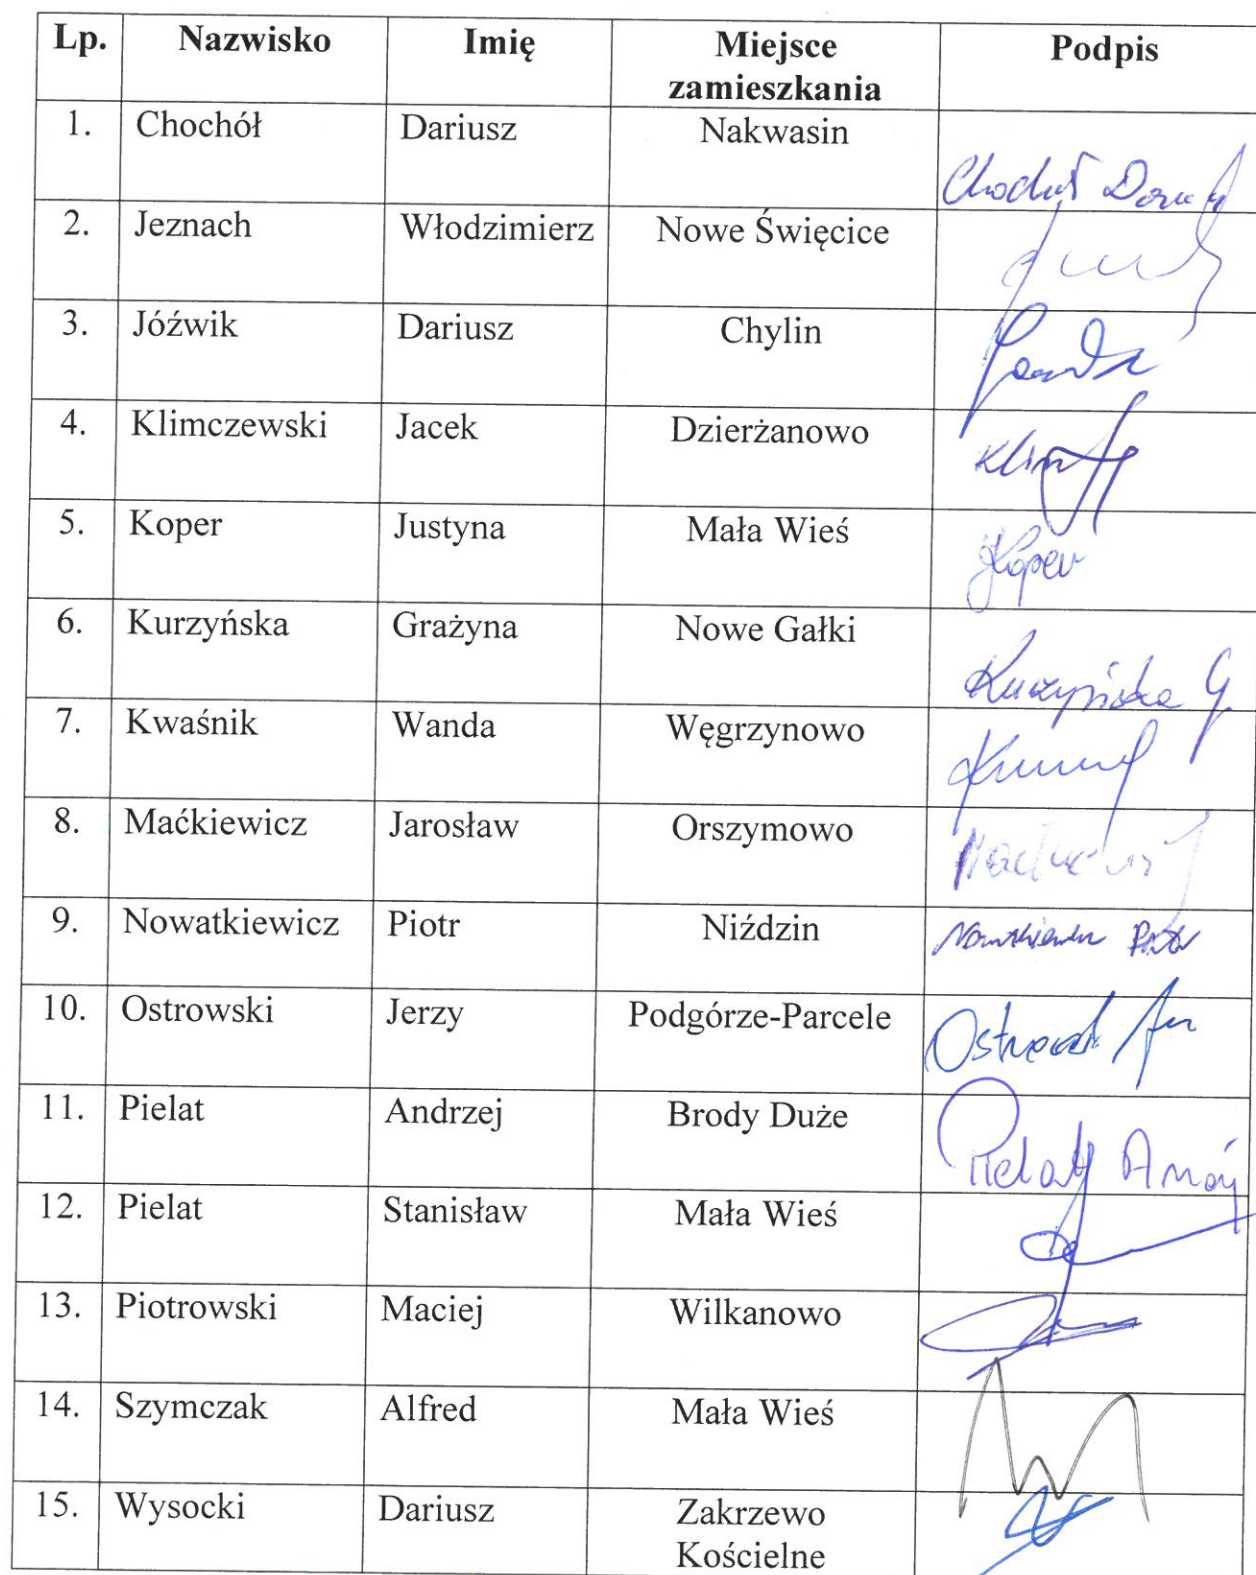 Lp. Nazwisko Imię Miejsce zamieszkania Podpis
1. Chochół Dariusz Nakwasin
2. Jeznach Włodzimierz Nowe Święcice
3. Jóźwik Dariusz Chylin
4. Klimczewski Jacek Dzierżanowo
5. Koper Justyna Mała Wieś Koper
6. Kurzyńska Grażyna Nowe Gałki Kurzyńska G.
7. Kwaśnik Wanda Węgrzynowo
8. Maćkiewicz Jarosław Orszymowo
9. Nowatkiewicz Piotr Niździn
10. Ostrowski Jerzy Podgórze-Parcele
11. Pielat Andrzej Brody Duże Pielat
12. Pielat Stanisław Mała Wieś
13. Piotrowski Maciej Wilkanowo
14. Szymczak Alfred Mała Wieś
15. Wysocki Dariusz Zakrzewo Kościelne